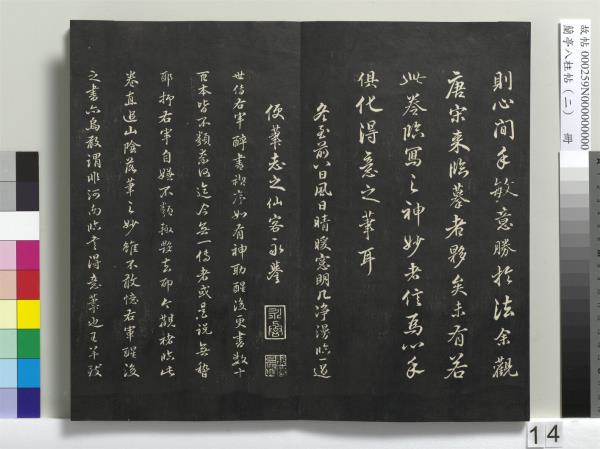 則心閒手敏意勝於法余觀
唐宋來臨摹者夥矣未有若
此卷臨寫之神妙者信為心手
俱化得意之筆耳
冬至前八日風日晴暖窗明几淨漫臨一過
便葉志之仙客永譽
世傳右軍醉書禊序如有神助醒後更書數十
百本皆不類
迄今無一傳者或是說無稽
耶抑右軍自嫌不類
去耶今觀
臨此
卷直追山陰落筆之妙雖不敢
右軍醒後
之書
為敢謂非河南臨本得意筆也王
故帖 000259N000000000
蘭亭八柱帖(二) 冊
14